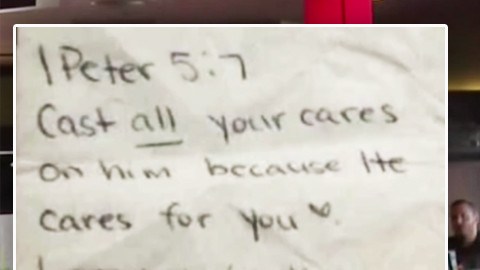 1 Peter 5:7
Cast all your cares
on him because He
cares for you ♥.